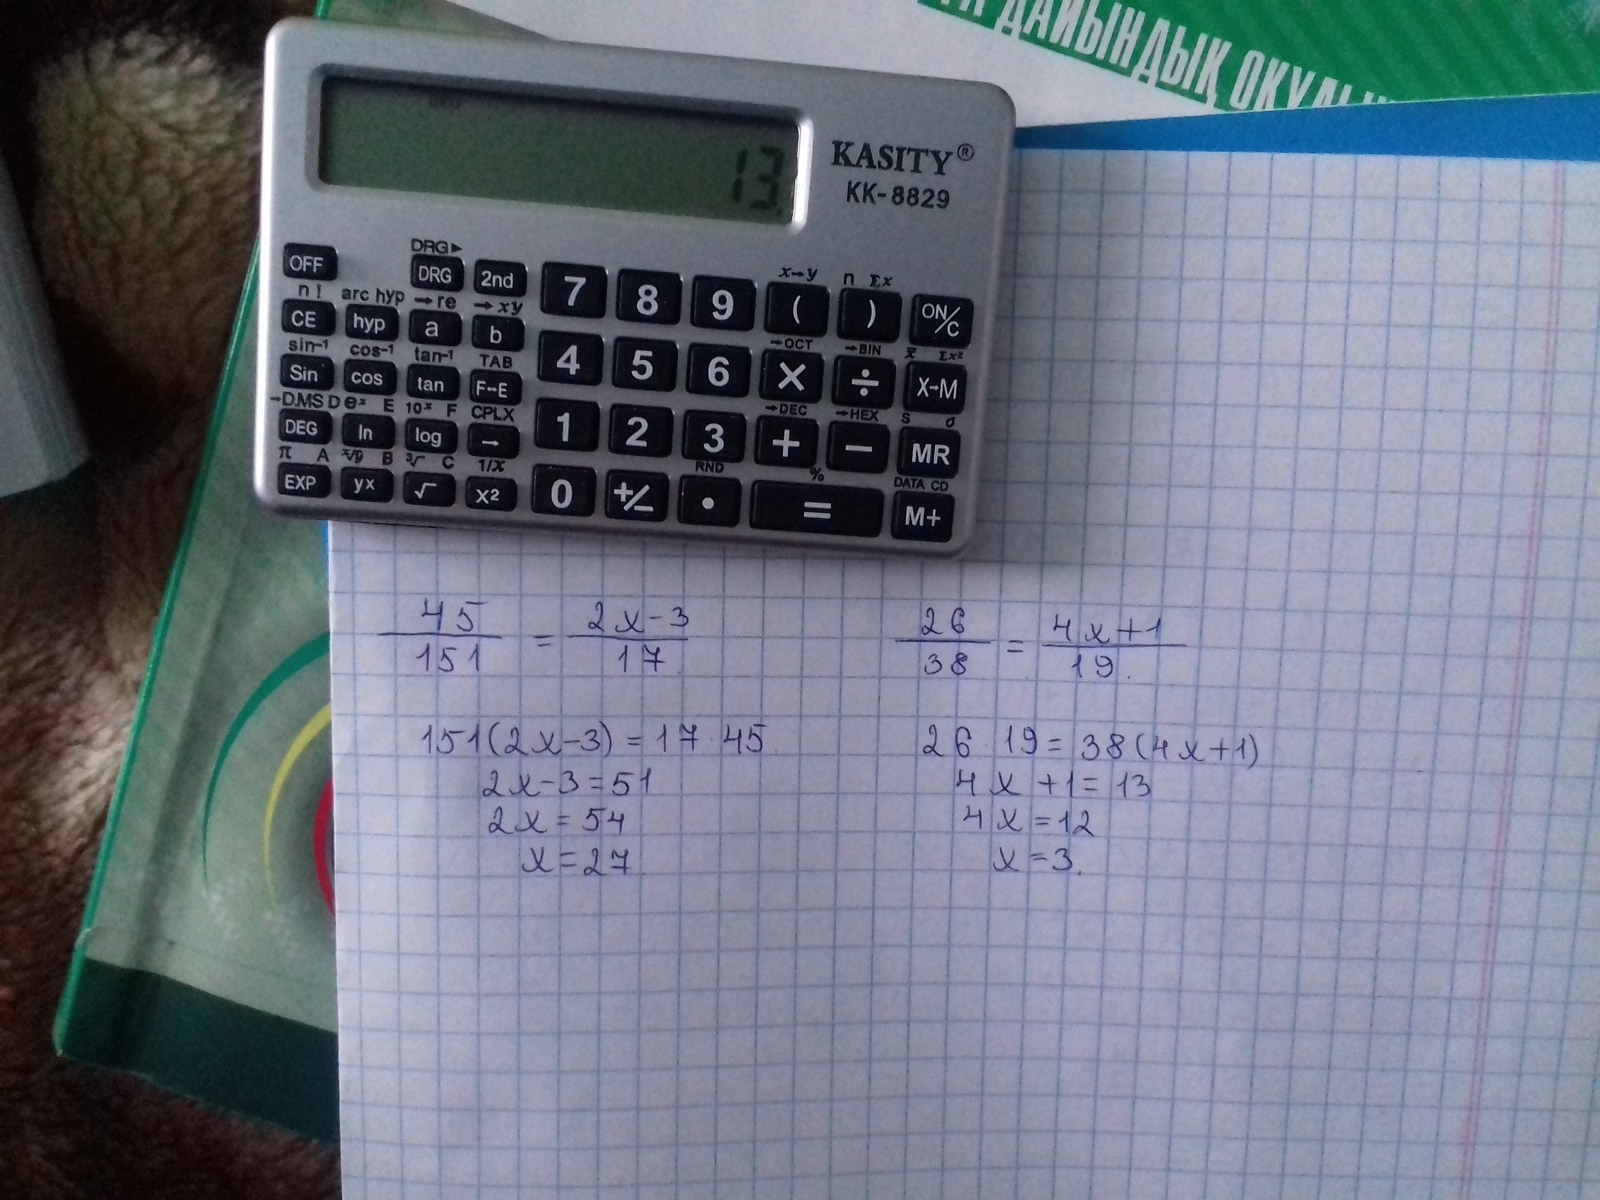 ДАЙЫНДЫҚ ОҚУЛЫҚ
13.
KASITY®
KK-8829
DRG▶
OFF DRG 2nd 7 8 9 ( ) ON/C
x→y n Σx
n! arc hyp →re →xy
CE hyp a b 4 5 6 × ÷ X→M
→OCT →BIN x̄ Σx²
sin⁻¹ cos⁻¹ tan⁻¹ TAB
Sin cos tan F↔E 1 2 3 + − MR
→DEC →HEX S σ
→D.MS D eˣ E 10ˣ F CPLX
DEG ln log → 0 +/− · = M+
RND % DATA CD
π A ˣ√y B ³√ C 1/x
EXP yx √ x²
45/151 = 2x-3/17
151(2x-3) = 17 45
2x-3=51
2x=54
x=27
26/38 = 4x+1/19.
26 · 19 = 38(4x+1)
4x +1= 13
4x =12
x =3.